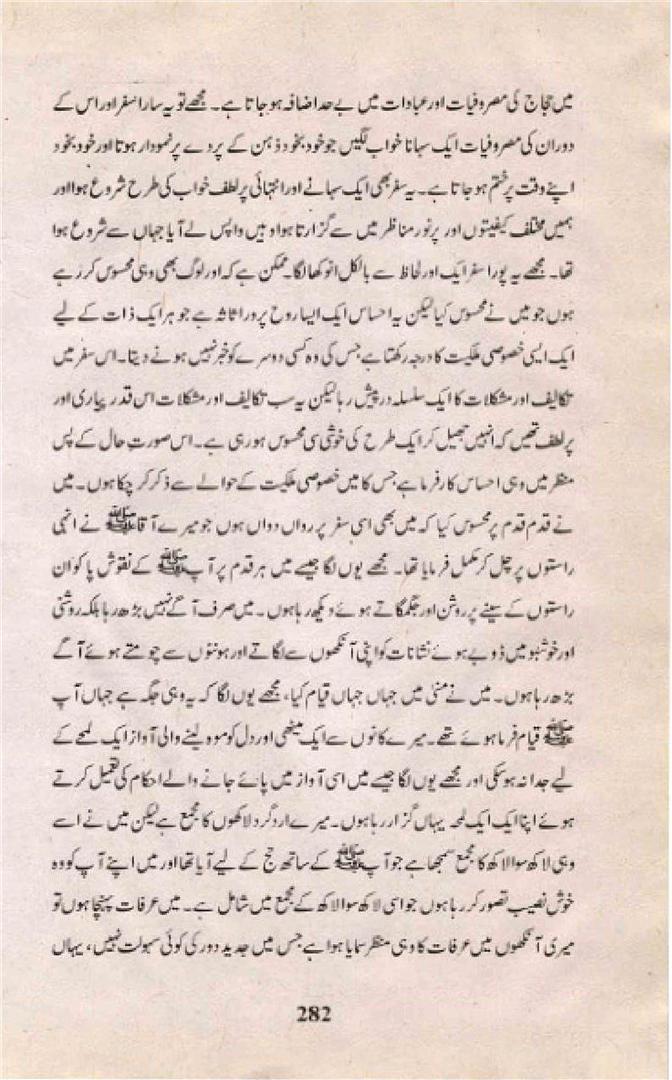 میں حجاج کی مصروفیات اور عبادات میں بے حد اضافہ ہو جاتا ہے۔ مجھے تو یہ سارا سفر اور اس کے
دوران کی مصروفیات ایک سہانا خواب لگیں جو خود بخود ذہن کے پردے پر نمودار ہوتا اور خود بخود
اپنے وقت پر ختم ہو جاتا ہے۔ یہ سفر بھی ایک سہانے اور انتہائی پر لطف خواب کی طرح شروع ہوا اور
ہمیں مختلف کیفیتوں اور پر نور مناظر میں سے گزارتا ہوا وہیں واپس لے آیا جہاں سے شروع ہوا
تھا۔ مجھے یہ پورا سفر ایک اور لحاظ سے بالکل انوکھا لگا۔ ممکن ہے کہ اور لوگ بھی وہی محسوس کر رہے
ہوں جو میں نے محسوس کیا لیکن یہ احساس ایک ایسا روح پرور اثاثہ ہے جو ہر ایک ذات کے لیے
ایک ایسی خصوصی ملکیت کا درجہ رکھتا ہے جس کی وہ کسی دوسرے کو خبر نہیں ہونے دیتا۔ اس سفر میں
تکالیف اور مشکلات کا ایک سلسلہ درپیش رہا لیکن یہ سب تکالیف اور مشکلات اس قدر پیاری اور
پر لطف تھیں کہ انہیں جھیل کر ایک طرح کی خوشی سی محسوس ہو رہی ہے۔ اس صورتِ حال کے پس
منظر میں وہی احساس کارفرما ہے جس کا میں خصوصی ملکیت کے حوالے سے ذکر کر چکا ہوں۔ میں
نے قدم قدم پر محسوس کیا کہ میں بھی اسی سفر پر رواں دواں ہوں جو میرے آقا ﷺ نے انہی
راستوں پر چل کر مکمل فرمایا تھا۔ مجھے یوں لگا جیسے میں ہر قدم پر آپ ﷺ کے نقوش پا کو ان
راستوں کے سینے پر روشن اور جگمگاتے ہوئے دیکھ رہا ہوں۔ میں صرف آگے نہیں بڑھ رہا بلکہ روشنی
اور خوشبو میں ڈوبے ہوئے نشانات کو اپنی آنکھوں سے لگاتے اور ہونٹوں سے چومتے ہوئے آگے
بڑھ رہا ہوں۔ میں نے منیٰ میں جہاں جہاں قیام کیا، مجھے یوں لگا کہ یہ وہی جگہ ہے جہاں آپ
ﷺ قیام فرما ہوئے تھے۔ میرے کانوں سے ایک میٹھی اور دل کو موہ لینے والی آواز ایک لمحے کے
لیے جدا نہ ہو سکی اور مجھے یوں لگا جیسے میں اسی آواز میں پائے جانے والے احکام کی تعمیل کرتے
ہوئے اپنا ایک ایک لمحہ یہاں گزار رہا ہوں۔ میرے ارد گرد لاکھوں کا مجمع ہے لیکن میں نے اسے
وہی لاکھ سوا لاکھ کا مجمع سمجھا ہے جو آپ ﷺ کے ساتھ حج کے لیے آیا تھا اور میں اپنے آپ کو وہ
خوش نصیب تصور کر رہا ہوں جو اسی لاکھ سوا لاکھ کے مجمع میں شامل ہے۔ میں عرفات پہنچا ہوں تو
میری آنکھوں میں عرفات کا وہی منظر سمایا ہوا ہے جس میں جدید دور کی کوئی سہولت نہیں، یہاں
282